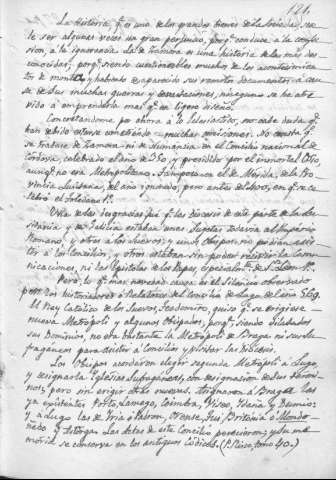 121.
La Historia, q.e es uno de los grandes bienes de la Sociedad, sue-
le ser algunas veces un gran perjuicio, porq.e conduce a la confu-
sion, a la ignorancia. La de Zamora es una historia de las menos
conocidas; porq.e siendo
de monta, y habiendo desaparecido sus remotos documentos a cau-
sa de sus muchas guerras y devastaciones, ninguno se ha atre-
vido á emprenderla mas q.e en ligero diseño.
Concretandome pr ahora á lo Eclesiastico, no cabe duda q.e
han debido estarse cometiendo muchas omisiones. No consta q.e
se tratase de Zamora ni de Numancia en el Concilio nacional de
Cordova, celebrado el año de 350, y presidido por el inmortal Osio,
aunq.e no era Metropolitano. Tampoco en el de Merida, de la Pro-
vincia Lusitana, del año ignorado, pero antes del
lebró el Toledano 1.º
Una de las desgracias fue q.e las diocesis de esta parte de la Lu-
sitania y de Galicia estaban unas sugetas todavia al Imperio
Romano, y otras a los Suevos; y unos Obispos no podian asis-
tir a los Concilios, y otros estaban sin poder recibir las Comu-
nicaciones, ni las Epistolas de los Papas, especialm.te de S. Leon 1.º
Pero, lo q.e mas novedad causa es el silencio observado
por los historiadores ó Relatores del Concilio de Lugo del año 569.
El Rey Catolico de los Suevos, Teodomiro, quiso q.e se erigiese
nueva Metropoli y algunos Obispados, porq.e siendo dilatados
sus Dominios, no era bastante la Metropoli de Braga ni sus su-
fraganeas para asistir a Concilios y visitar las Diocesis.
Los Obispos acordaron elegir segunda Metropoli á Lugo,
y designarla Iglesias Sufraganeas, con designacion de sus termi-
nos; pero sin erigir otras nuevas. Asignaron á Braga las
ya existentes Porto, Lamego, Coimbra, Viseo, Idaña y Dumio;
y a Lugo las de Iria ó Padron, Orense, Tui, Britonia ó Mondo-
ñedo y Astorga. Las Actas de este Concilio perecieron; y su me-
moria se conserva en los antiguos Códices. (P. Risco, tomo 40.)